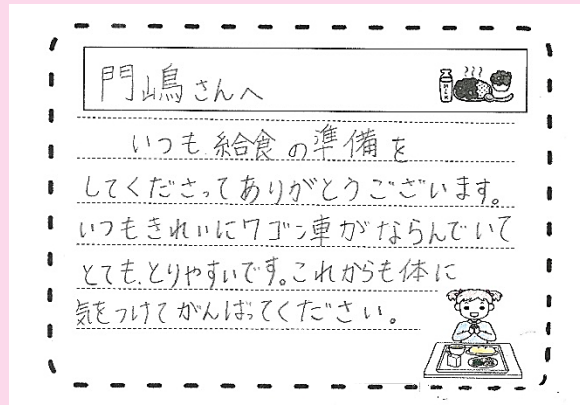 門嶋さんへ
いつも給食の準備を
してくださってありがとうございます。
いつもきれいにワゴン車がならんでいて
とても、とりやすいです。これからも体に
気をつけてがんばってください。